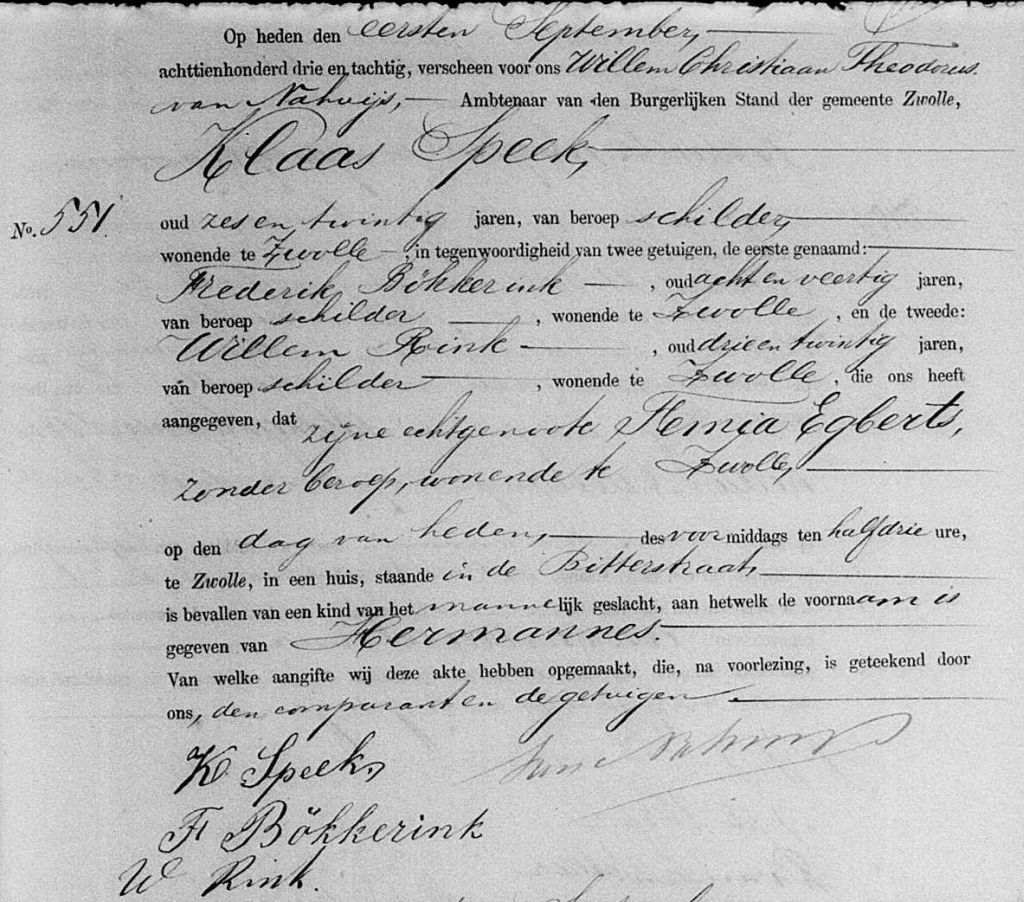 Op heden den eersten September,
achttienhonderd drie en tachtig, verscheen voor ons Willem Christiaan Theodorus
van Nahuijs, Ambtenaar van den Burgerlijken Stand der gemeente Zwolle,
Klaas Speek,
No. 551.
oud zes en twintig jaren, van beroep schilder,
wonende te Zwolle, in tegenwoordigheid van twee getuigen, de eerste genaamd:
Frederik Bökkerink, oud acht en veertig jaren,
van beroep schilder, wonende te Zwolle, en de tweede:
Willem Rink, oud drie en twintig jaren,
van beroep schilder, wonende te Zwolle, die ons heeft
aangegeven, dat zijne echtgenoote Hemia Egberts,
zonder beroep, wonende te Zwolle,
op den dag van heden, des voormiddags ten half drie ure,
te Zwolle, in een huis, staande in de Bitterstraat,
is bevallen van een kind van het mannelijk geslacht, aan hetwelk de voornaam is
gegeven van Hermannes.
Van welke aangifte wij deze akte hebben opgemaakt, die, na voorlezing, is geteekend door
ons, den comparant en de getuigen.
K Speek,
F Bökkerink
W Rink.